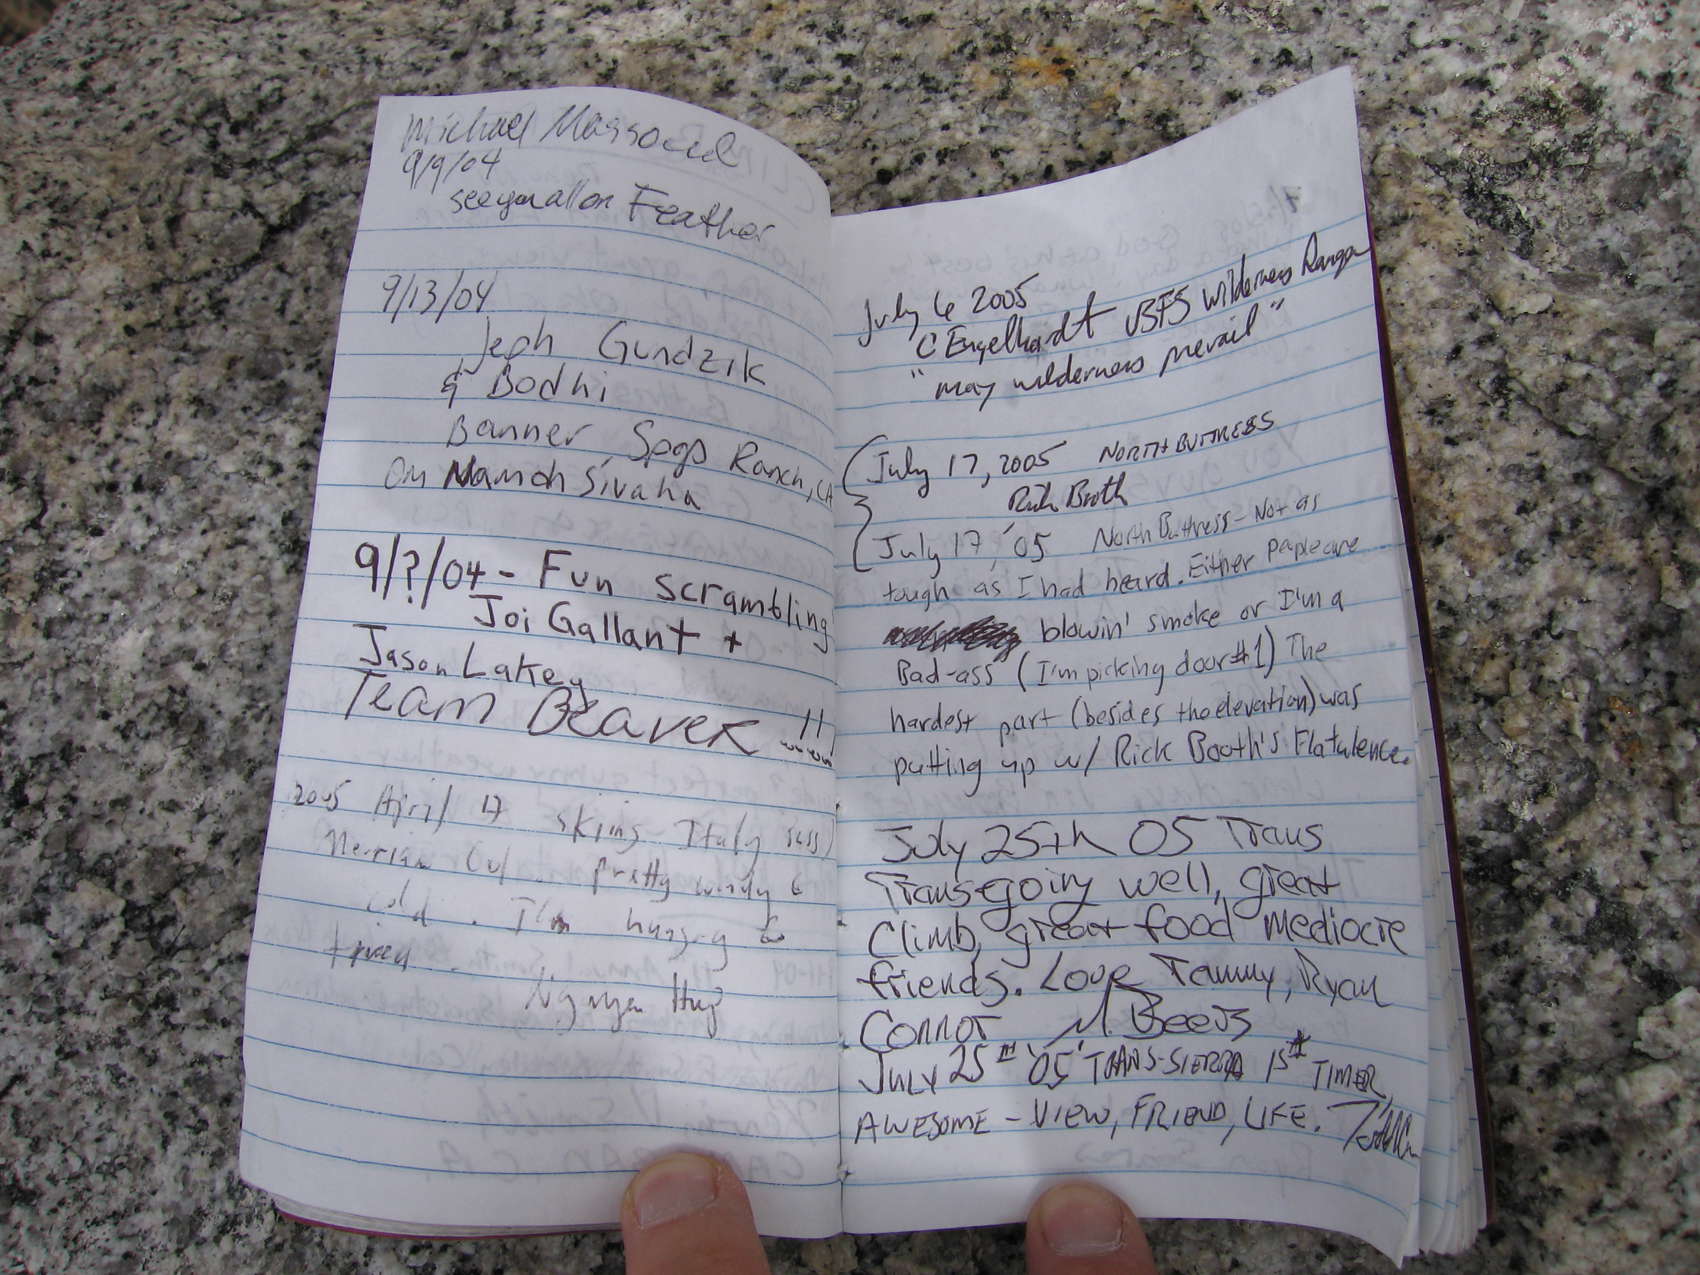 Michael Massoud
9/9/04
see you all on Feather
9/13/04
Jeph Gundzik
& Bodhi
Banner, Spgs Ranch, CA
Om Namoh Sivaha
9/?/04 - Fun scrambling
Joi Gallant +
Jason Lakey
Team Beaver !!
2005 April 17 skiing Italy
Merriam pretty windy &
cold. I'm hungry &
Nguyen Huy
July 6 2005
C Engelhardt USFS Wilderness Ranger
"may wilderness prevail"
July 17, 2005 North Buttress
Rick Booth
July 17, '05 North Buttress - Not as
tough as I had heard. Either people are
blowin' smoke or I'm a
Bad-ass (I'm picking door #1) The
hardest part (besides the elevation) was
putting up w/ Rick Booth's Flatulence.
July 25th 05 Trans
Trans going well, great
Climb, great food mediocre
friends. Love Tammy, Ryan
Connor M. Beers
July 25th '05' Trans-Sierra 1st Timer,
Awesome - View, Friend, Life.